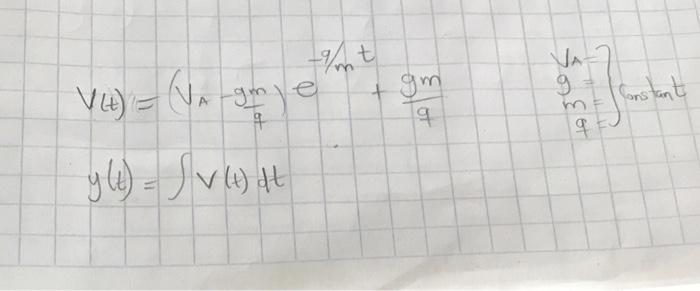 V(t) = (V_A - gm/q) e^(-q/m t) + gm/q
y(t) = ∫ V(t) dt
V_A =
g =
m =
q =
} Constant